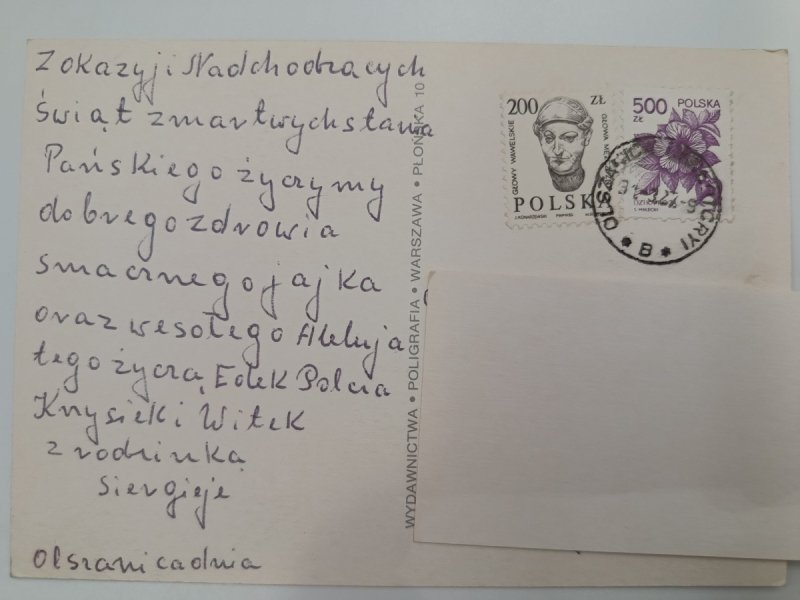 Z okazyji Nadchodzących
Świąt zmartwychstania
Pańskiego życzymy
dobrego zdrowia
smacznego jajka
oraz wesołego Aleluja
tego życzą Edek Polcia
Krzysiek i Witek
z rodzinką
Siergieje
Olszanica dnia
WYDAWNICTWA • POLIGRAFIA • WARSZAWA • PŁOŃSKA 10
200 ZŁ
GŁOWY WAWELSKIE
POLSKA
500
ZŁ
POLSKA
OLSZANICA
B